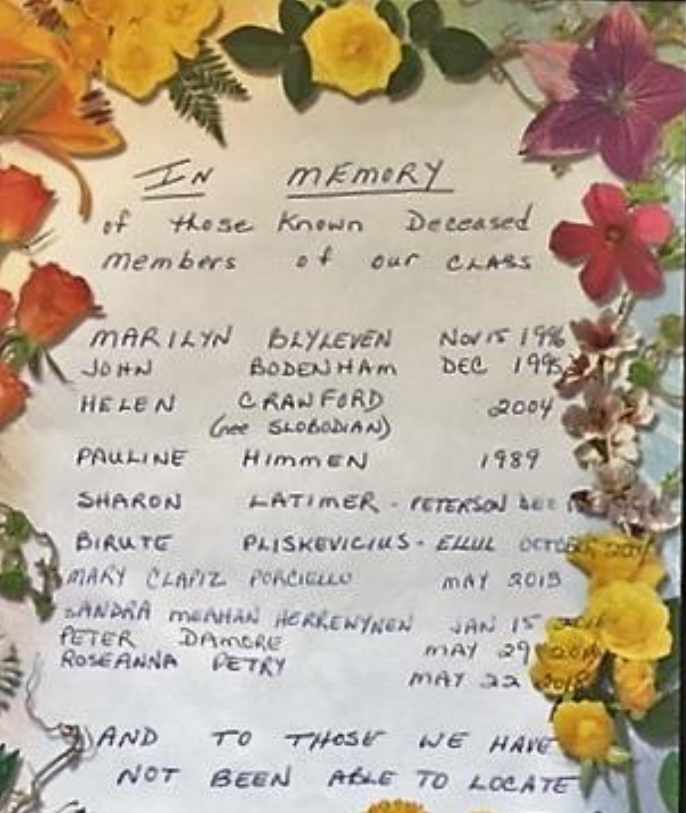 IN MEMORY
of those Known Deceased
members of our CLASS
MARILYN BLYLEVEN NOV 15 1996
JOHN BODENHAM DEC 1995
HELEN CRAWFORD 2004
(nee SLOBODIAN)
PAULINE HIMMEN 1989
SHARON LATIMER - PETERSON DEC
BIRUTE PLISKEVICIUS - ELLUL OCTOBER
MARY CLAPIZ PORCIELLO MAY 2015
SANDRA MEAHAN HERREWYNEN JAN 15
PETER DAMORE MAY 29
ROSEANNA PETRY MAY 22 2018
AND TO THOSE WE HAVE
NOT BEEN ABLE TO LOCATE